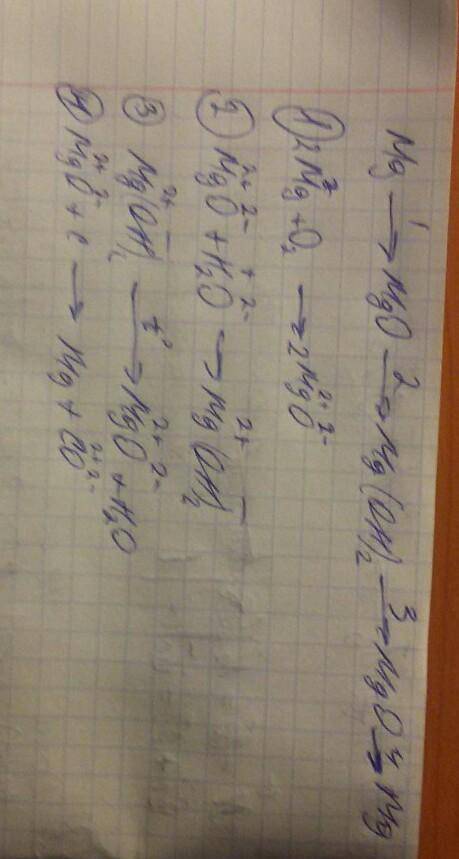 Mg →¹ MgO →² Mg(OH)₂ →³ MgO →⁴ Mg
① 2Mg + O₂ → 2Mg²⁺O²⁻
② Mg²⁺O²⁻ + H₂⁺O²⁻ → Mg²⁺(OH)₂⁻
③ Mg²⁺(OH)₂⁻ →t° Mg²⁺O²⁻ + H₂O
④ Mg²⁺O²⁻ + c → Mg + C²⁺O²⁻